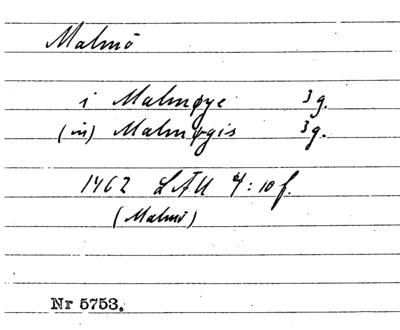 Malmö
i Malmøye 3 g.
(in) Malmøgis 3 g.
1462 LÅU 4:10 f.
(Malmö)
Nr 5753.